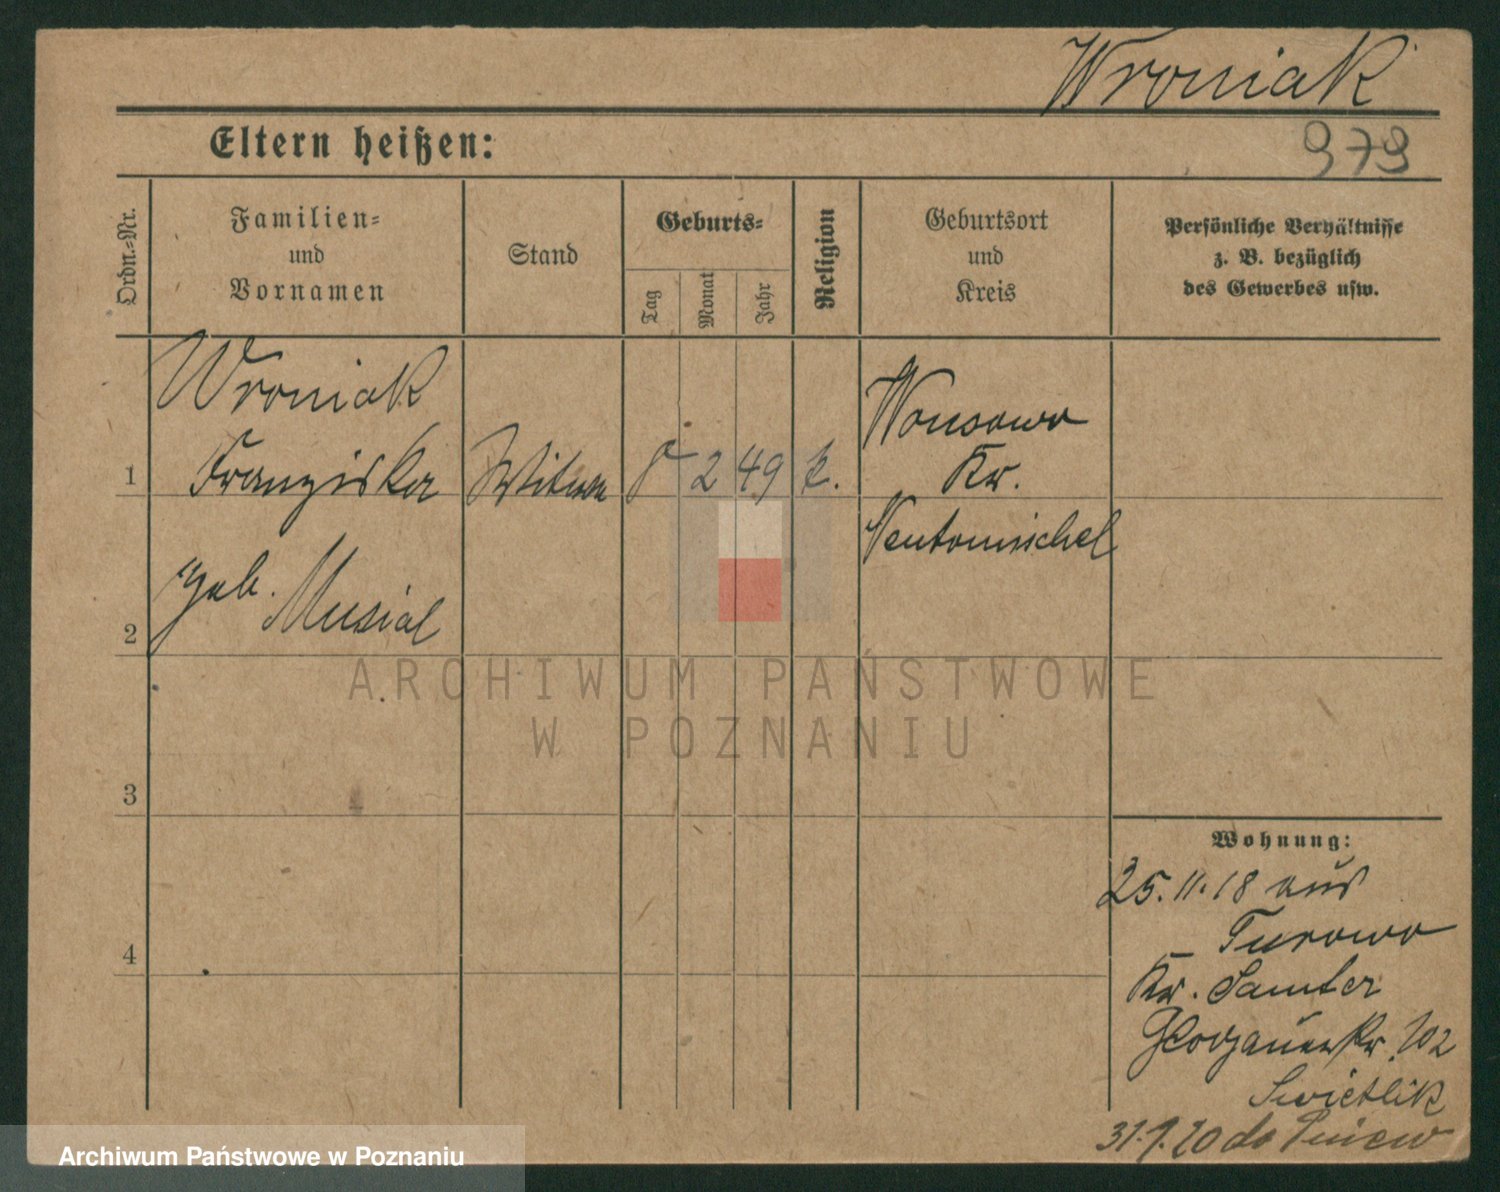 Wroniak
Eltern heißen:
979
Ordn.-Nr.
Familien-
und
Vornamen
Stand
Geburts-
Tag
Monat
Jahr
Religion
Geburtsort
und
Kreis
Persönliche Verhältnisse
z. B. bezüglich
des Gewerbes usw.
Wroniak
1 Franziska Witwe 8 2 49 k.
Wonsowo
Kr.
Neutomischel
geb. Musial
2
3
4
Wohnung:
25.11.18 aus
Turowo
Kr. Samter
Glogauerstr. 102
Swietlik
31.9.20 do Pniew
ARCHIWUM PAŃSTWOWE
W POZNANIU
Archiwum Państwowe w Poznaniu